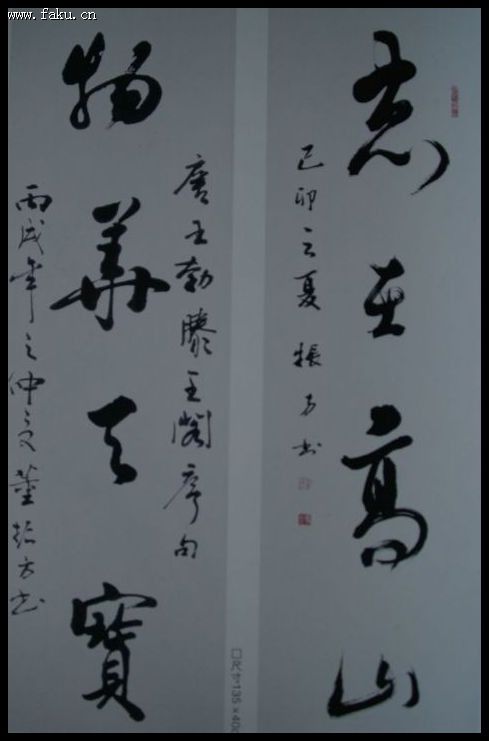 www.faku.cn
志在高山
己卯之夏振方书
唐王勃滕王阁序句
物華天寶
丙戌年之仲夏董振方书
口尺寸135×40c